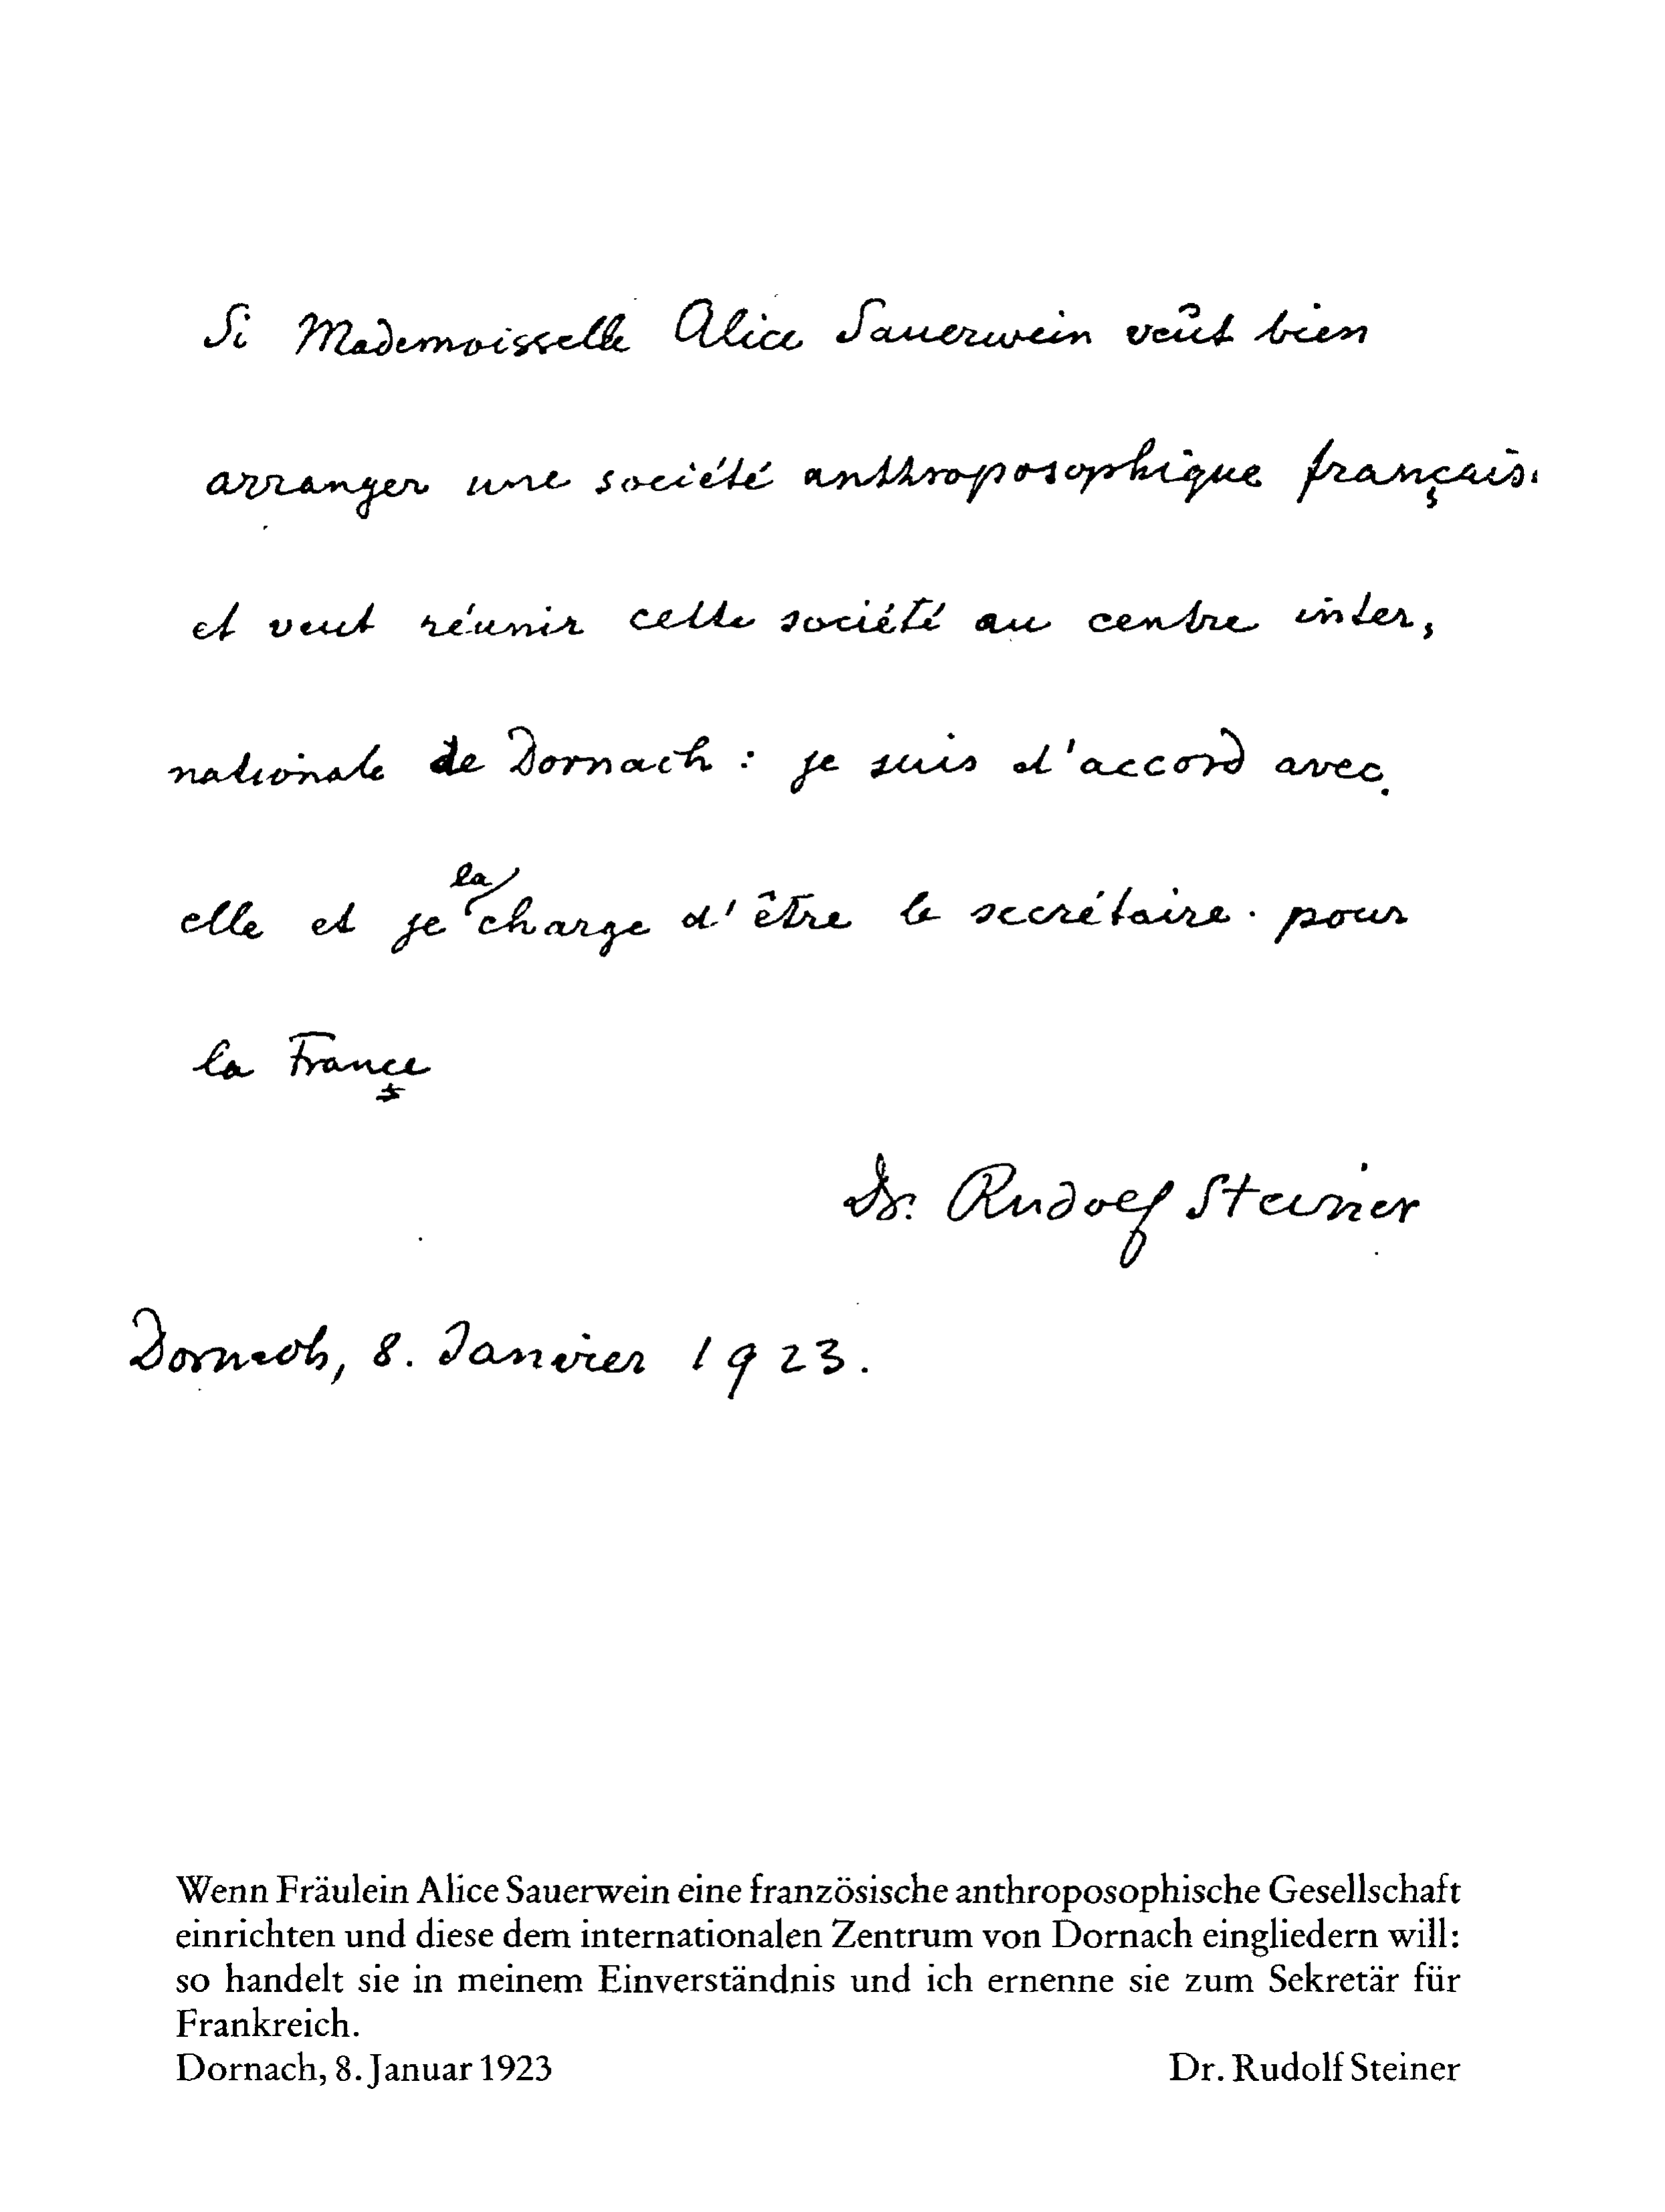 Si Mademoisselle Alice Sauerwein veût bien
arranger une société anthroposophique français.
et veut réunir cette société au centre inter,
nationale de Dornach : je suis d'accord avec
elle et je la charge d'être le secrétaire pour
la Françe
Dr. Rudolf Steiner
Dornach, 8. Janvier 1923.
Wenn Fräulein Alice Sauerwein eine französische anthroposophische Gesellschaft
einrichten und diese dem internationalen Zentrum von Dornach eingliedern will:
so handelt sie in meinem Einverständnis und ich ernenne sie zum Sekretär für
Frankreich.
Dornach, 8. Januar 1923 Dr. Rudolf Steiner